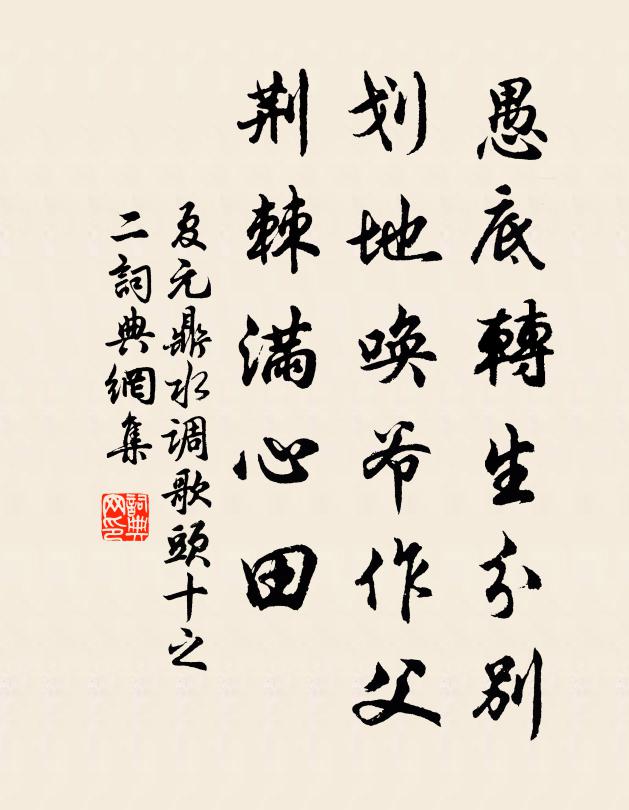 愚底轉生分別
划地唤爷作父
荆棘满心田
夏元鼎水调歌頭十之
二詞典網集
詞典网印